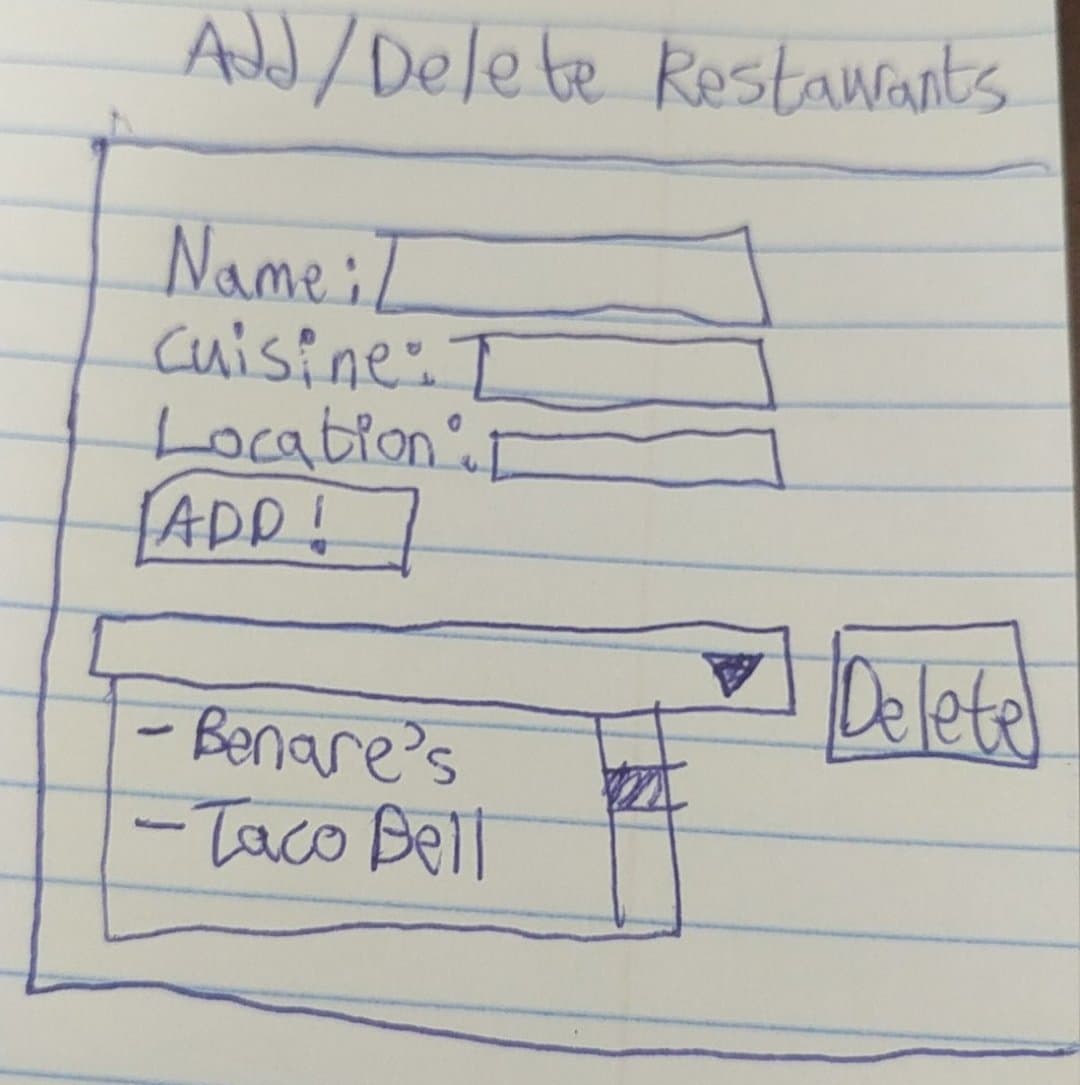 Add/Delete Restaurants
Name:
Cuisine:
Location:
ADD!
Delete
- Benare's
- Taco Bell